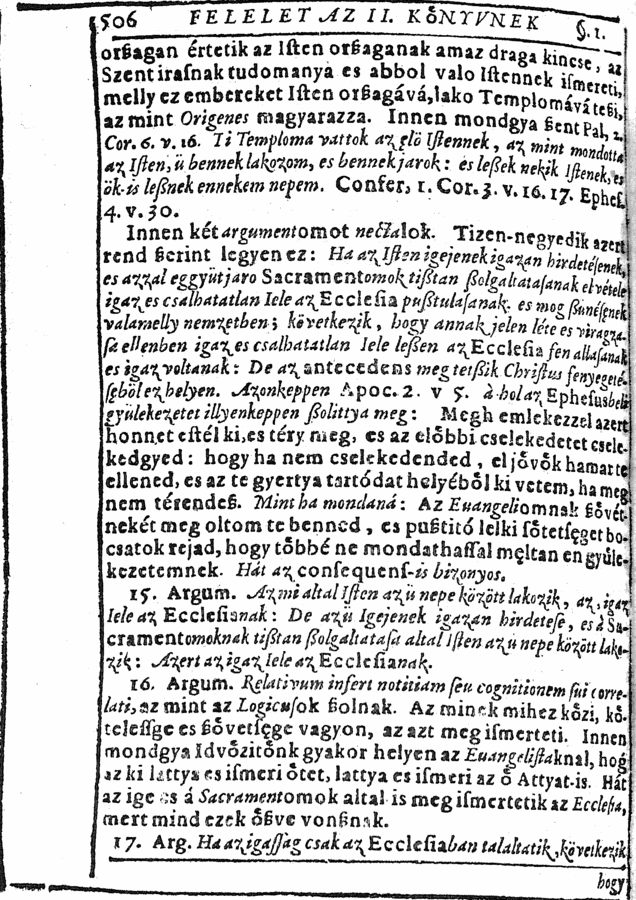 506 FELELET AZ II. KŐNYVNEK §. 1.
orßagan értetik az Iſten orßaganak amaz draga kincse, az
Szent irasnak tudomanya es abbol valo Iſtennek iſmereti,
melly ez embereket Iſten orßagává, lako Templomává teßi,
az mint Origenes magyarazza. Innen mondgya ßent Pal, 2.
Cor. 6. v. 16. Ti Temploma vattok az ęlö Iſtennek, az mint mondotta
az Iſten, ü bennek lakozom, es bennek jarok: és leßek nekik Iſtenek, es
ök-is leßnek ennekem nepem. Confer, 1. Cor. 3. v. 16. 17. Epheſ.
4. v. 30.
Innen két argumentomot nectalok. Tizen-negyedik azert
rend ßerint legyen ez: Ha az Iſten igejenek igazan hirdetéſenek,
es azzal eggyütt jaro Sacramentomok tißtan ßolgaltataſanak elvétele
igaz es csalhatatlan Iele az Ecclesia pußtulaſanak. es mog ßünéſenek
valamelly nemzetben; következik, hogy annak jelen léte es viragza-
ſa ellenben igaz es csalhatatlan Iele leßen az Ecclesia fen allaſanak
es igaz voltanak: De az antecedens meg tetſik Chriſtus fenyegeté-
ſéböl ez helyen. Azonkeppen Apoc. 2. v 5. à hol az Ephesusbeli
gyülekezetet illyenkeppen ßolittya meg: Megh emlekezzel azert
honnet eſtél ki, es téry meg, es az előbbi cselekedetet csele-
kedgyed: hogy ha nem cselekedended, el jővők hamar te
ellened, es az te gyertya tartódat helyéből ki vetem, ha meg
nem térendeß. Mint ha mondaná: Az Euangeliomnak ßővét-
nekét meg oltom te benned, es pußtitó lelki ſőtetſęget bo-
csatok rejad, hogy tőbbé ne mondathaſſal męltan en gyűle-
kezetemnek. Hát az conſequens-is bizonyos.
15. Argum. Az mi altal Iſten az ü nepe között lakozik, az, igaz
Iele az Eccleſianak: De az ü Igejenek igazan hirdeteſe, es à Sa-
cramentomoknak tißtan ßolgaltataſa altal Iſten az ü nepe között lako-
zik: Azert az igaz Iele az Eccleſianak.
16. Argum. Relativum infert notitiam ſeu cognitionem ſui corre-
lati, az mint az Logicuſok ßolnak. Az minek mihez kőzi, kő-
teleſſge es ßővetſęge vagyon, az azt meg iſmerteti. Innen
mondgya Idvőzitőnk gyakor helyen az Euangeliſtaknal, hog
az ki lattya es iſmeri őtet, lattya es iſmeri az ő Attyat-is. Hát
az ige es á Sacramentomok altal is meg iſmertetik az Eccleſia,
mert mind ezek őßve vonßnak.
17. Arg. Ha az igaſſag csak az Eccleſiaban talaltatik, következik
hogy